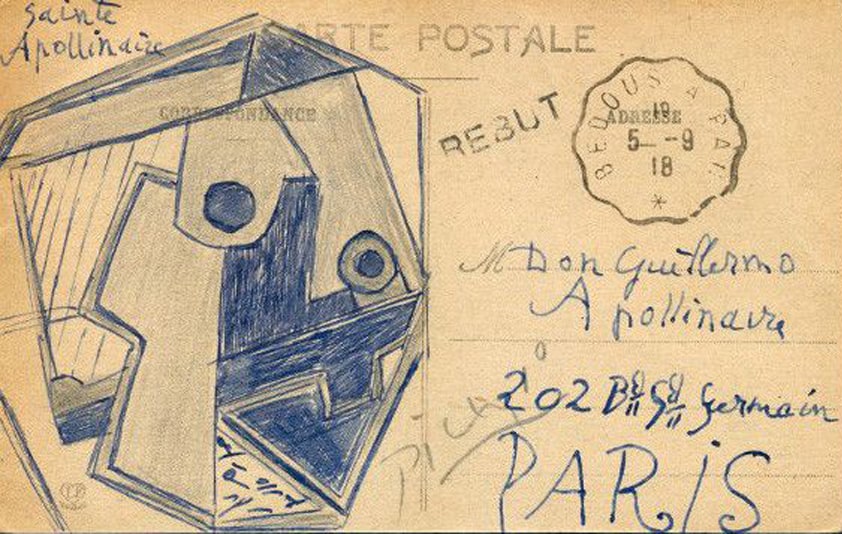 Sainte
Apollinaire
CARTE POSTALE
CORRESPONDANCE
ADRESSE
REBUT
BEDOUS A
19
5 - 9
18
*
M Don Guillermo
Apollinaire
202 Bd St Germain
PARIS
Picasso